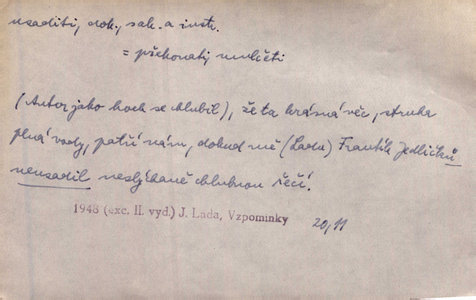 usaditi, dok., sak. a instr.
= překonati, umlčeti
(Autor jako hoch se chlubil), že ta krásná věc, struha
plná vody, patří nám, dokud mě (Ladu) Frantík Jedličků
neusadil neslýchaně chlubnou řečí.
1948 (exc. II. vyd.) J. Lada, Vzpomínky
20, 11